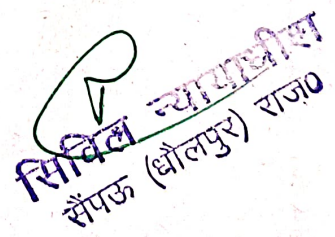 सिविल न्यायाधीश
सैंपऊ (धौलपुर) राज़०